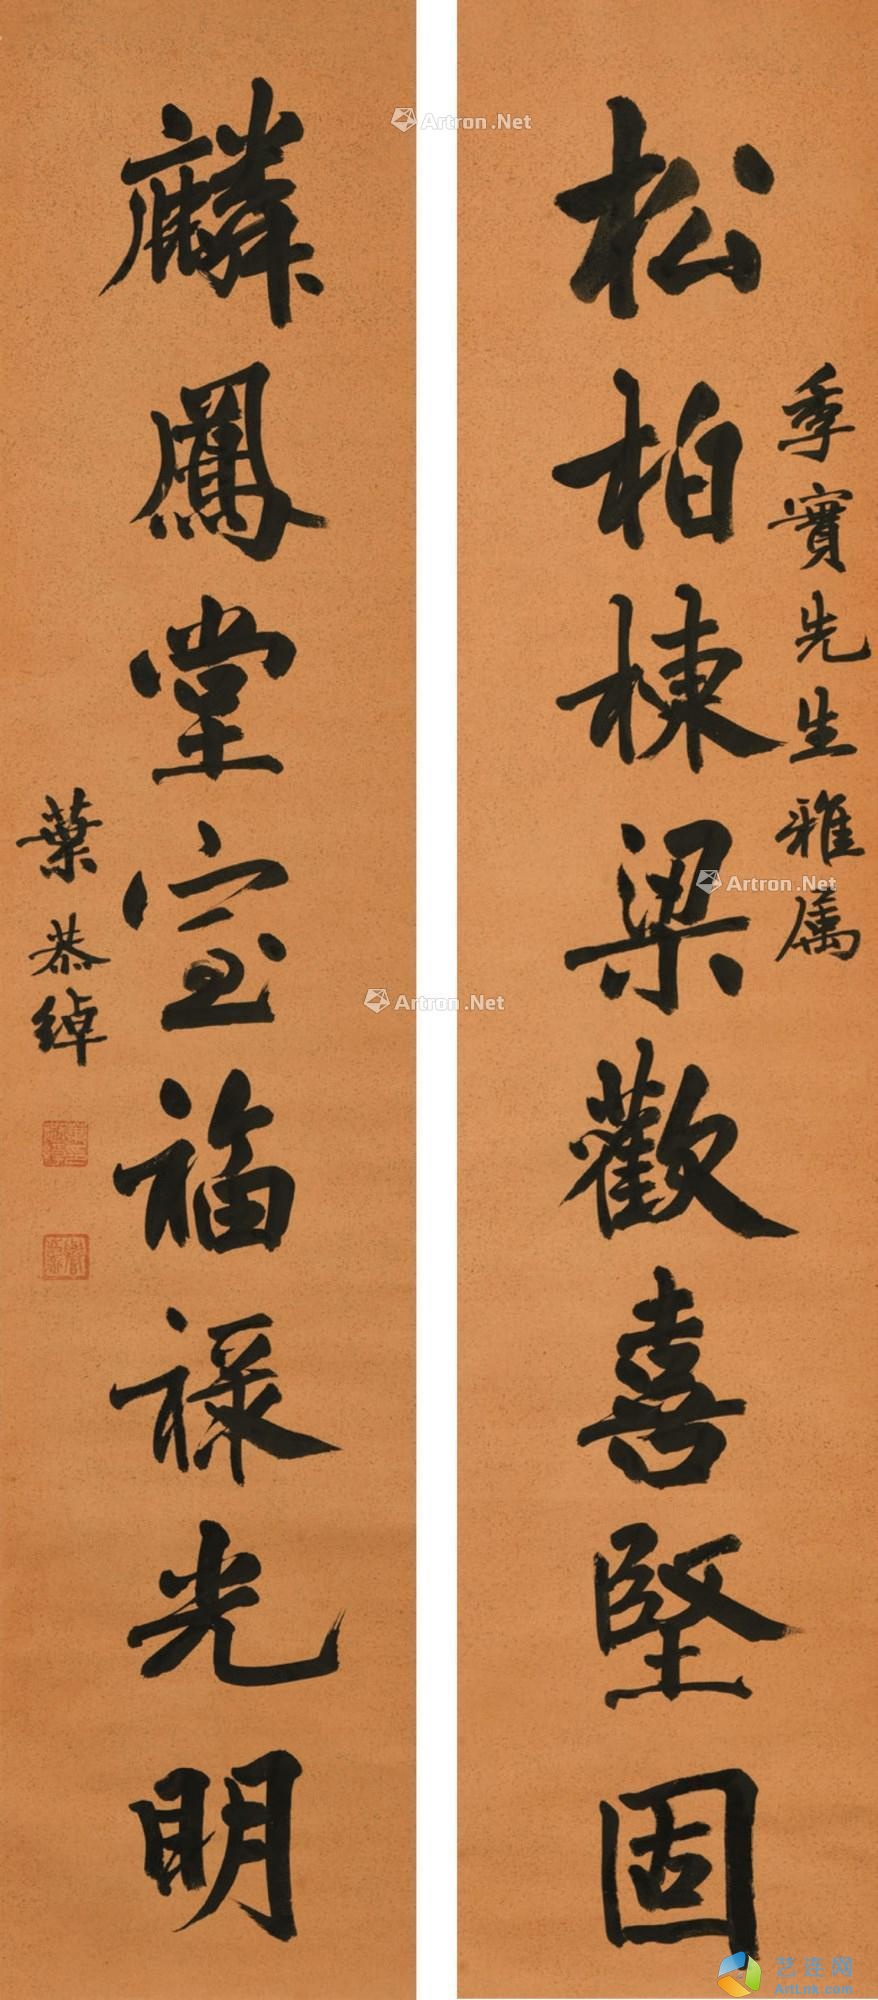 松柏棟梁歡喜堅固
季實先生雅属
麟鳳堂室福祿光明
葉恭綽
Artron.Net
Artron.Net
Artron.Net
艺连网
ArtLnk.com